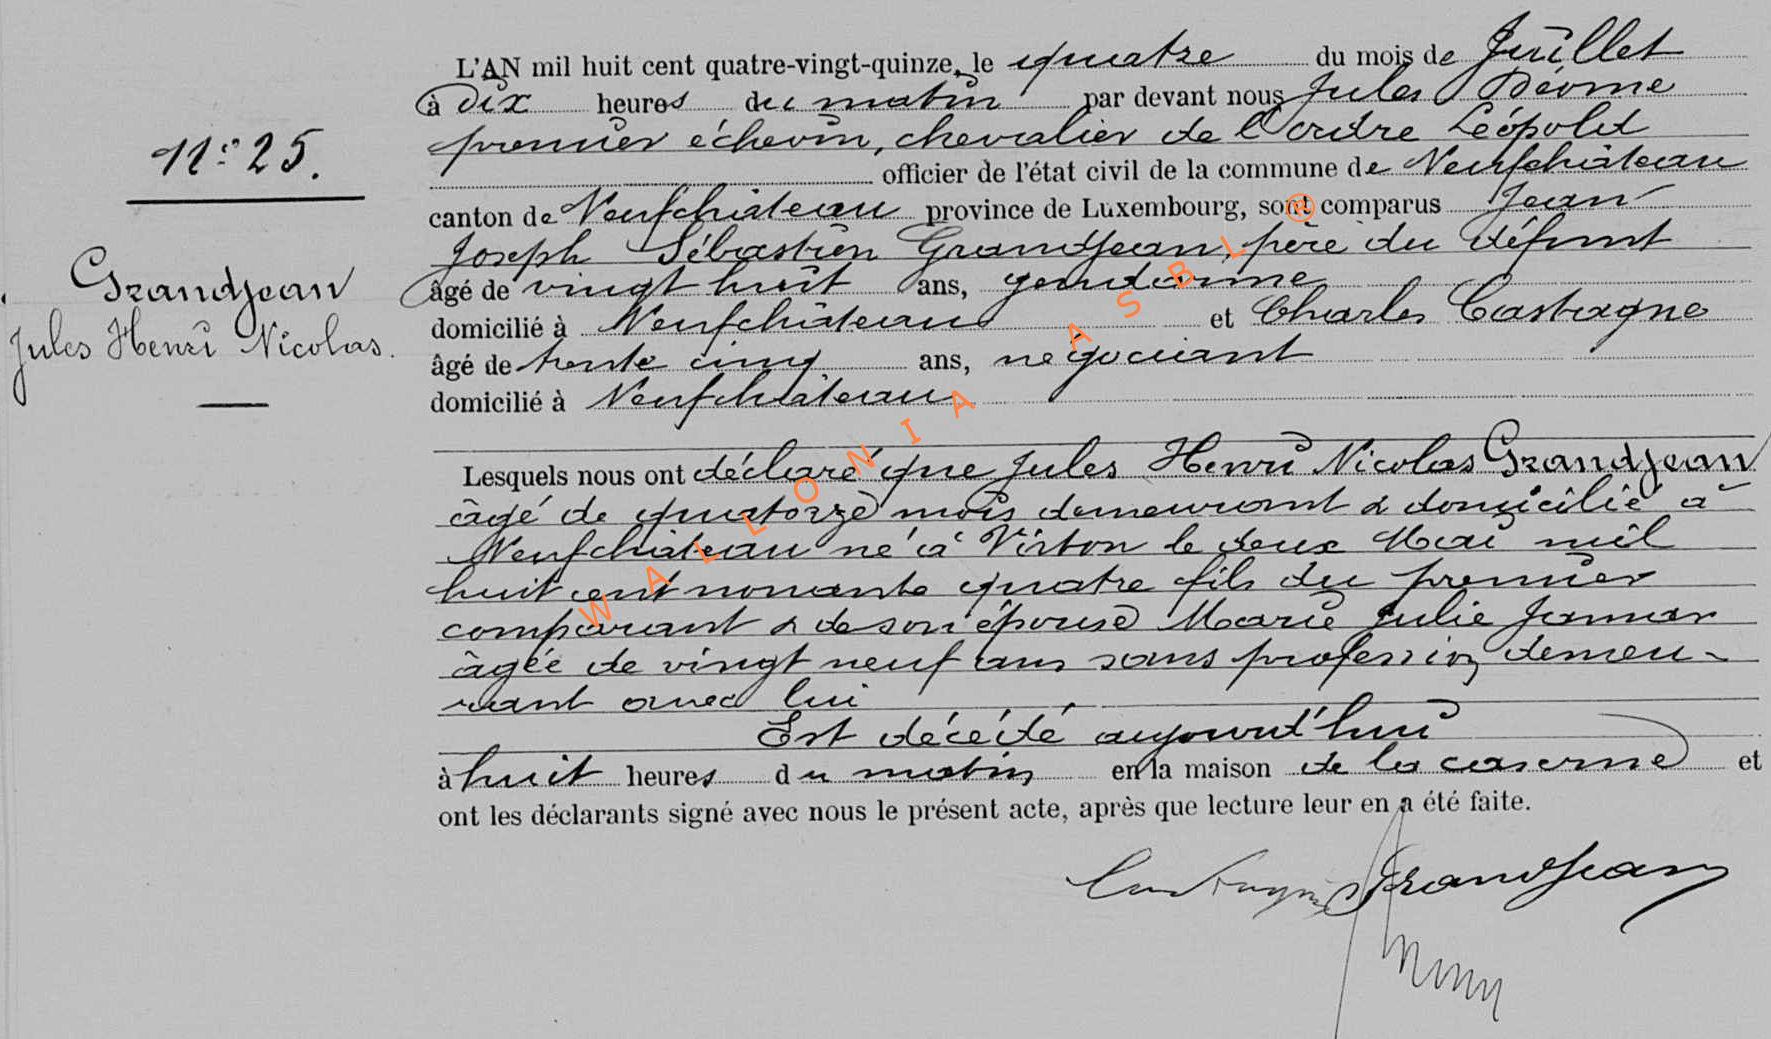 N° 25.
Grandjean
Jules Henri Nicolas.
L'AN mil huit cent quatre-vingt-quinze, le quatre du mois de Juillet
à dix heures du matin par devant nous Jules
premier échevin, chevalier de l'ordre Léopold
officier de l'état civil de la commune de Neufchâteau
canton de Neufchâteau province de Luxembourg, sont comparus Jean
Joseph Sébastien Grandjean, père du défunt
âgé de vingt huit ans, gendarme
domicilié à Neufchâteau et Charles Castagne
âgé de trente cinq ans, négociant
domicilié à Neufchâteau
Lesquels nous ont déclaré que Jules Henri Nicolas Grandjean
âgé de quatorze mois demeurant & domicilié à
Neufchâteau né à Virton le deux Mai mil
huit cent nonante quatre fils du premier
comparant & de son épouse Marie Julie
âgée de vingt neuf ans sans profession demeu-
rant avec lui
Est décédé aujourd'hui
à huit heures du matin en la maison de la caserne et
ont les déclarants signé avec nous le présent acte, après que lecture leur en a été faite.
Grandjean
WALLONIA ASBL ®